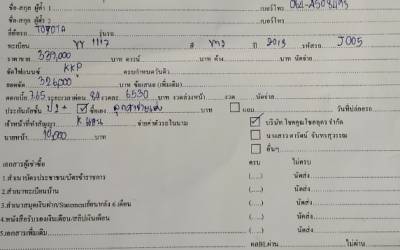 ชื่อ-สกุล ผู้ค้ำ 1 เบอร์โทร
ชื่อ-สกุล ผู้ค้ำ 2 เบอร์โทร
ยี่ห้อ TOYOTA รุ่นรถ
ทะเบียน 1117 สี ขาว ปี 2013 รหัสรถ J005
ราคาขาย 379,000 บาท ดาวน์ บาท ค้าง บาท นัดจ่าย
จัดไฟแนนซ์ KKP ครบกำหนดวันที่
ยอดจัด 326,000 บาท ชื่อเสนอ (เพิ่มเติม)
ดอกเบี้ย 7.65 ระยะเวลาผ่อน 84 งวดละ 6530 บาท งวดล่วงหน้า งวด นัดจ่าย
ประกันภัยชั้น ซื้อเอง ลูกค้าจ่ายเอง บาท แถม วันที่ปล่อยรถ
เจ้าหน้าที่ทำสัญญา จ่ายค่าตัวรถในนาม บริษัท โชคคูณโชคอุดร จำกัด
นายหน้า 10,000 บาท นางสาวดารัตน์ จันทรสุวรรณ
อื่นๆ
เอกสารผู้เช่าซื้อ ครบ ไม่ครบ
1.สำเนาบัตรประชาชน/บัตรข้าราชการ (.....) (.....) นัดส่ง
2.สำเนาทะเบียนบ้าน (.....) (.....) นัดส่ง
3.สำเนาสมุดเงินฝาก/Statementเรียกหลัง 6 เดือน (.....) (.....) นัดส่ง
4.หนังสือรับรองเงินเดือน/สลิปเงินเดือน (.....) (.....) นัดส่ง
5.เอกสารเพิ่มเติม (.....) (.....) นัดส่ง
ผ่าน ไม่ผ่าน